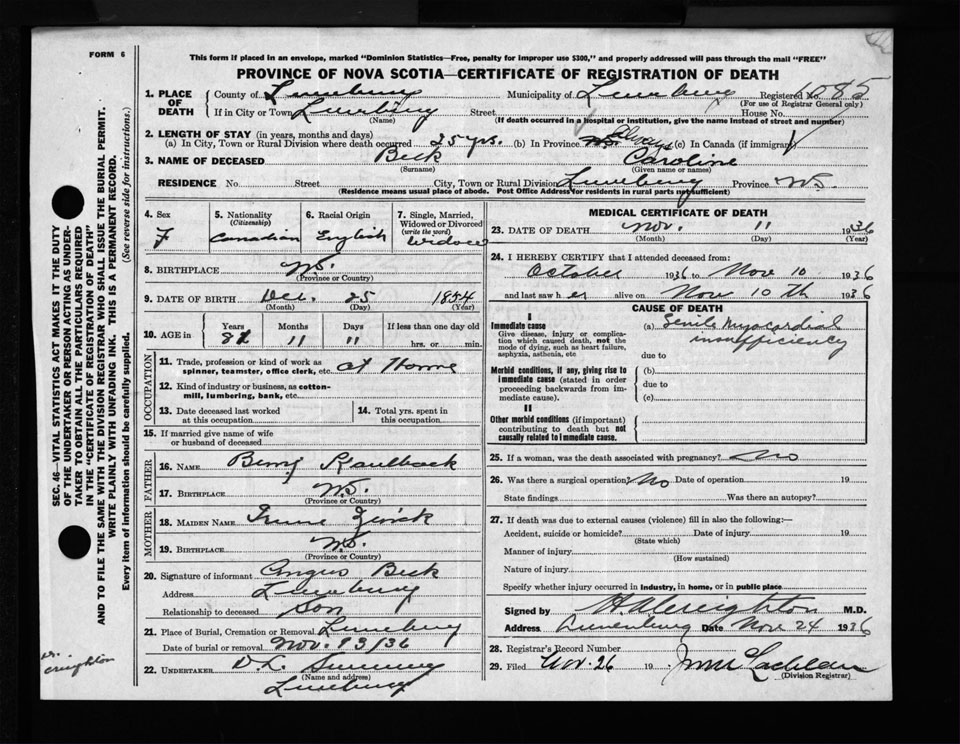 FORM 6
This form if placed in an envelope, marked "Dominion Statistics—Free, penalty for improper use $300," and properly addressed will pass through the mail "FREE"
PROVINCE OF NOVA SCOTIA—CERTIFICATE OF REGISTRATION OF DEATH
1. PLACE OF DEATH County of Lunenburg Municipality of Lunenburg Registered No.
(For use of Registrar General only)
If in City or Town Lunenburg Street House No.
(Name) (If death occurred in a hospital or institution, give the name instead of street and number)
2. LENGTH OF STAY (in years, months and days)
(a) In City, Town or Rural Division where death occurred 25 yrs. (b) In Province Always (c) In Canada (if immigrant)
3. NAME OF DECEASED Beck Caroline
(Surname) (Given name or names)
RESIDENCE No. Street City, Town or Rural Division Lunenburg Province N.S.
(Residence means usual place of abode. Post Office Address for residents in rural parts not sufficient)
4. Sex F
5. Nationality (Citizenship) Canadian
6. Racial Origin English
7. Single, Married, Widowed or Divorced (write the word) Widowed
8. BIRTHPLACE N.S.
(Province or Country)
9. DATE OF BIRTH Dec. 25 1854
(Month) (Day) (Year)
10. AGE in Years Months Days If less than one day old
11 11 hrs. or min.
OCCUPATION
11. Trade, profession or kind of work as spinner, teamster, office clerk, etc. at Home
12. Kind of industry or business, as cotton-mill, lumbering, bank, etc.
13. Date deceased last worked at this occupation
14. Total yrs. spent in this occupation
15. If married give name of wife or husband of deceased
FATHER
16. NAME Benj
17. BIRTHPLACE N.S.
(Province or Country)
MOTHER
18. MAIDEN NAME Zinck
19. BIRTHPLACE N.S.
(Province or Country)
20. Signature of informant Angus Beck
Address Lunenburg
Relationship to deceased Son
21. Place of Burial, Cremation or Removal Lunenburg
Date of burial or removal Nov. 13/36
22. UNDERTAKER D.L.
(Name and address)
Lunenburg
MEDICAL CERTIFICATE OF DEATH
23. DATE OF DEATH Nov. 11 1936
(Month) (Day) (Year)
24. I HEREBY CERTIFY that I attended deceased from:
October 1936 to Nov 10 1936
and last saw her alive on Nov 10th 1936
CAUSE OF DEATH
I
Immediate cause
Give disease, injury or complication which caused death, not the mode of dying, such as heart failure, asphyxia, asthenia, etc
(a) Senile myocardial insufficiency
due to
Morbid conditions, if any, giving rise to immediate cause (stated in order proceeding backwards from immediate cause).
(b)
due to
(c)
II
Other morbid conditions (if important) contributing to death but not causally related to immediate cause.
25. If a woman, was the death associated with pregnancy? No
26. Was there a surgical operation? No Date of operation 19
State findings Was there an autopsy?
27. If death was due to external causes (violence) fill in also the following:—
Accident, suicide or homicide? Date of injury 19
(State which)
Manner of injury
(How sustained)
Nature of injury
Specify whether injury occurred in industry, in home, or in public place
Signed by Creighton M.D.
Address Lunenburg Date Nov 24 1936
28. Registrar's Record Number
29. Filed Nov. 26 19
(Division Registrar)
SEC. 46—VITAL STATISTICS ACT MAKES IT THE DUTY
OF THE UNDERTAKER OR PERSON ACTING AS UNDER-
TAKER TO OBTAIN ALL THE PARTICULARS REQUIRED
IN THE "CERTIFICATE OF REGISTRATION OF DEATH"
AND TO FILE THE SAME WITH THE DIVISION REGISTRAR WHO SHALL ISSUE THE BURIAL PERMIT.
WRITE PLAINLY WITH UNFADING INK. THIS IS A PERMANENT RECORD.
Every item of information should be carefully supplied. (See reverse side for instructions.)
Dr. Creighton